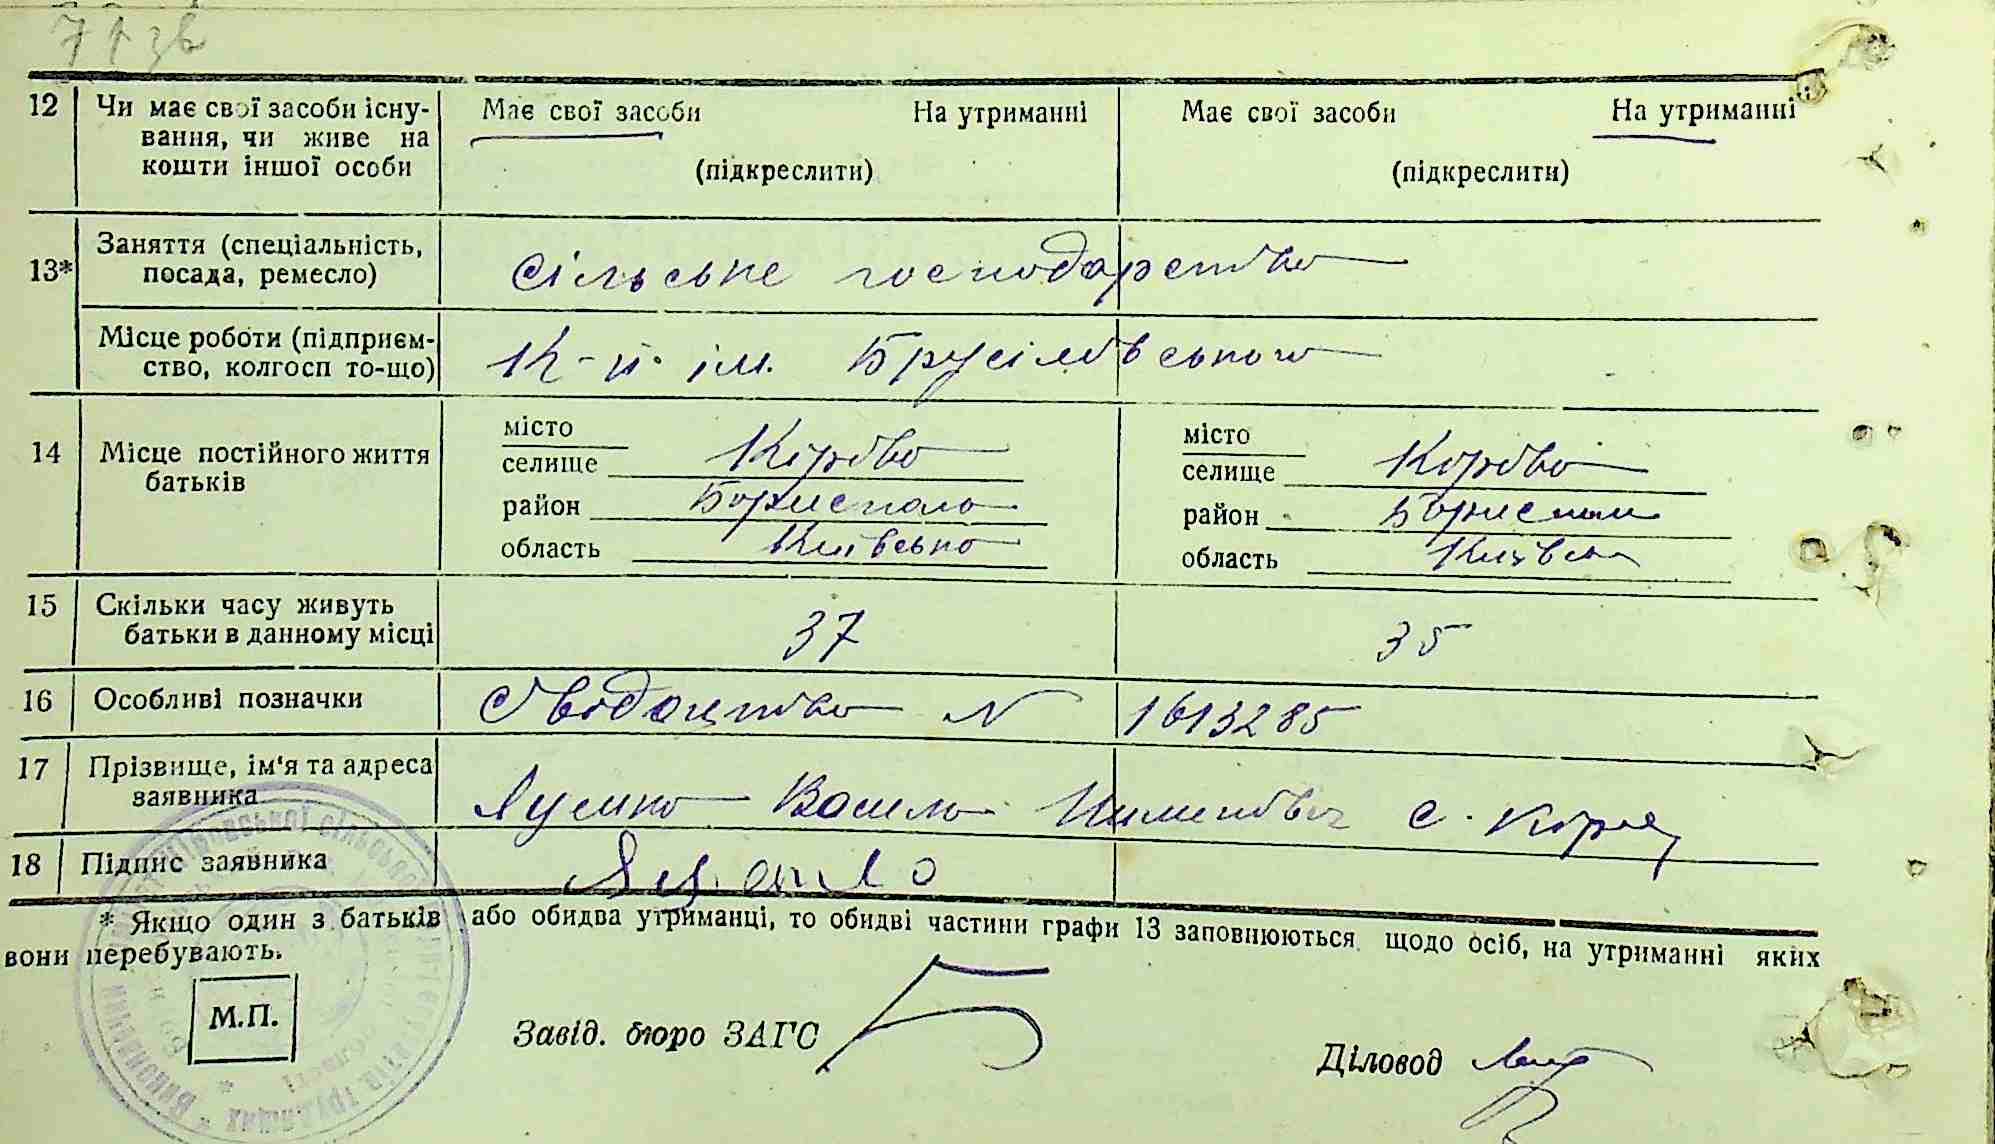 71 зв
12 Чи має свої засоби існу- Має свої засоби На утриманні Має свої засоби На утриманні
вання, чи живе на
кошти іншої особи (підкреслити) (підкреслити)
13* Заняття (спеціальність,
посада, ремесло) сільське господарство
Місце роботи (підприєм-
ство, колгосп то-що) ім.
14 Місце постійного життя
батьків
місто місто
селище селище
район Бориспола район Бориспол
область Київсько область
15 Скільки часу живуть
батьки в данному місці 37 35
16 Особливі позначки Свідоцтво N 1613285
17 Прізвище, ім'я та адреса
заявника Василь с.
18 Підпис заявника
* Якщо один з батьків або обидва утриманці, то обидві частини графи 13 заповнюються щодо осіб, на утриманні яких
вони перебувають.
М.П.
Завід. бюро ЗАГС
Діловод